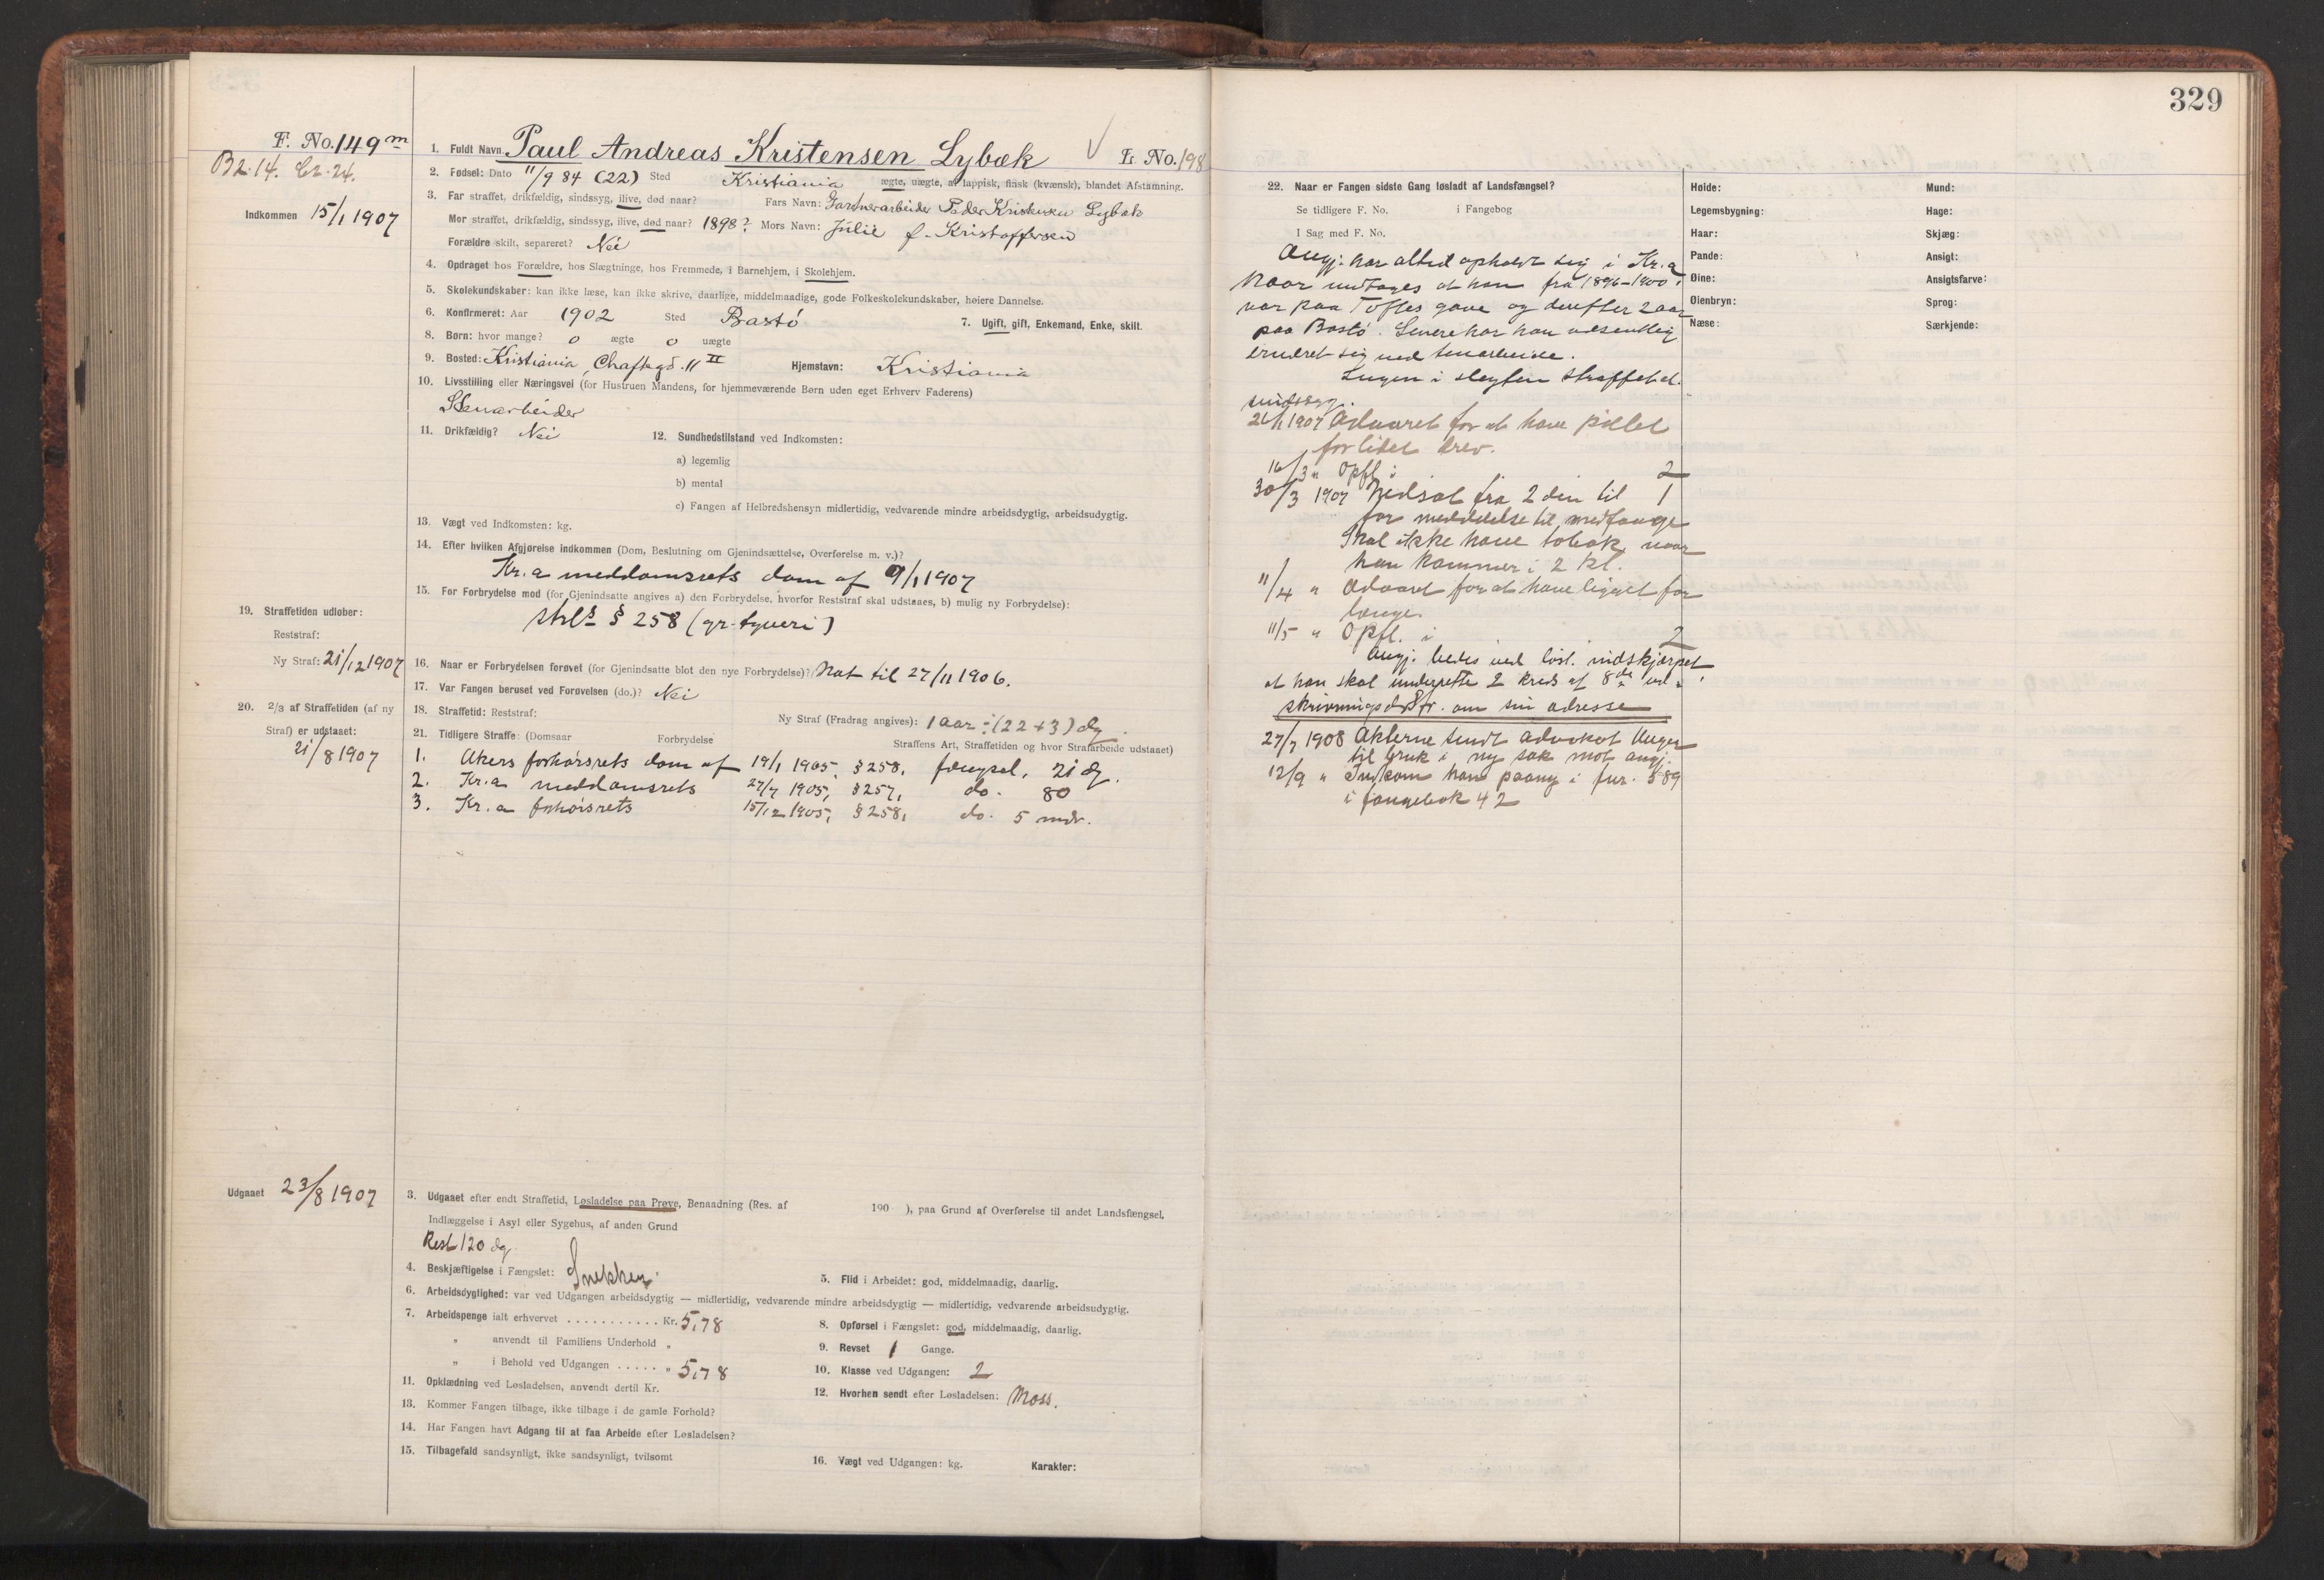 329
F. No. 149 m
B2.14. C2.24.
Indkommen 15/1 1907
1. Fuldt Navn Paul Andreas Kristensen Lybæk L. No. 198
2. Fødsel: Dato 11/9 84 (22) Sted Kristiania ægte, uægte, af lappisk, finsk (kvænsk), blandet Afstamning.
3. Far straffet, drikfældig, sindssyg, ilive, død naar? Fars Navn: Gartnerarbeider Peder Kristensen Lybæk
Mor straffet, drikfældig, sindssyg, ilive, død naar? 1898? Mors Navn: Julie f. Kristoffersen
Forældre skilt, separeret? Nei
4. Opdraget hos Forældre, hos Slægtninge, hos Fremmede, i Barnehjem, i Skolehjem.
5. Skolekundskaber: kan ikke læse, kan ikke skrive, daarlige, middelmaadige, gode Folkeskolekundskaber, høiere Dannelse.
6. Konfirmeret: Aar 1902 Sted Bastö 7. Ugift, gift, Enkemand, Enke, skilt.
8. Børn: hvor mange? 0 ægte 0 uægte
9. Bosted: Kristiania, Chaftsgd. 11 II Hjemstavn: Kristiania
10. Livsstilling eller Næringsvei (for Hustruen Mandens, for hjemmeværende Børn uden eget Erhverv Faderens)
Stenarbeider
11. Drikfældig? Nei 12. Sundhedstilstand ved Indkomsten:
a) legemlig
b) mental
c) Fangen af Helbredshensyn midlertidig, vedvarende mindre arbeidsdygtig, arbeidsudygtig.
13. Vægt ved Indkomsten: kg.
14. Efter hvilken Afgjørelse indkommen (Dom, Beslutning om Gjenindsættelse, Overførelse m. v.)?
Kr.a meddomsrets dom af 9/1 1907
15. For Forbrydelse mod (for Gjenindsatte angives a) den Forbrydelse, hvorfor Reststraf skal udstaaes, b) mulig ny Forbrydelse):
strls § 258 (gr. tyveri)
19. Straffetiden udløber:
Reststraf:
Ny Straf: 21/12 1907
16. Naar er Forbrydelsen forøvet (for Gjenindsatte blot den nye Forbrydelse)? Nat til 27/11 1906.
17. Var Fangen beruset ved Forøvelsen (do.)? Nei
20. 2/3 af Straffetiden (af ny
Straf) er udstaaet:
21/8 1907
18. Straffetid: Reststraf: Ny Straf (Fradrag angives): 1 aar ÷ (22+3) dg.
21. Tidligere Straffe: (Domsaar Forbrydelse Straffens Art, Straffetiden og hvor Strafarbeide udstaaet)
1. Akers forhørsrets dom af 19/1 1905, § 258, fængsel, 21 dg.
2. Kr.a meddomsrets 27/7 1905, § 257, do. 80
3. Kr.a forhørsrets 15/12 1905, § 258, do. 5 mdr.
Udgaaet 23/8 1907
3. Udgaaet efter endt Straffetid, Løsladelse paa Prøve, Benaadning (Res. af 190 ), paa Grund af Overførelse til andet Landsfængsel.
Indlæggelse i Asyl eller Sygehus, af anden Grund
Rest 120 dg.
4. Beskjæftigelse i Fængslet: Snekker 5. Flid i Arbeidet: god, middelmaadig, daarlig.
6. Arbeidsdygtighed: var ved Udgangen arbeidsdygtig — midlertidig, vedvarende mindre arbeidsdygtig — midlertidig, vedvarende arbeidsudygtig.
7. Arbeidspenge ialt erhvervet . . . . . . . . . . . Kr. 5,78 8. Opførsel i Fængslet: god, middelmaadig, daarlig.
„ anvendt til Familiens Underhold „ 9. Revset 1 Gange.
„ i Behold ved Udgangen . . . . . „ 5,78 10. Klasse ved Udgangen: 2
11. Opklædning ved Løsladelsen, anvendt dertil Kr. 12. Hvorhen sendt efter Løsladelsen: Moss.
13. Kommer Fangen tilbage, ikke tilbage i de gamle Forhold?
14. Har Fangen havt Adgang til at faa Arbeide efter Løsladelsen?
15. Tilbagefald sandsynligt, ikke sandsynligt, tvilsomt
16. Vægt ved Udgangen: kg. Karakter:
22. Naar er Fangen sidste Gang løsladt af Landsfængsel?
Se tidligere F. No. i Fangebog
I Sag med F. No.
Angj. har altid opholdt sig i Kr.a
naar undtages at han fra 1896–1900
var paa Toftes gave og derefter 2 aar
paa Bastö. Senere har han væsentlig
ernæret sig ved stenarbeide.
Ingen i slegten straffet el.
sindssyg.
21/1 1907 Advaret for at have pillet
for lidet drev.
16/3 „ Opfl. i 2
30/3 1907 Nedsat fra 2den til 1
for meddelelse til medfange
Skal ikke have tobak, naar
han kommer i 2 kl.
11/4 „ Advaret for at have ligget for
længe.
11/5 „ Opfl. i 2
Angj. bedes ved løsl. indskjærpet,
at han skal underrette 2 kreds af 8de ud-
skrivningsdistr. om sin adresse
27/7 1908 Akterne sendt advokat Unger
til bruk i ny sak mot angj.
12/9 „ Indkom han paany i fnr. 589
i fangebok 42
Høide:
Legemsbygning:
Haar:
Pande:
Øine:
Øienbryn:
Næse:
Mund:
Hage:
Skjæg:
Ansigt:
Ansigtsfarve:
Sprog:
Særkjende: